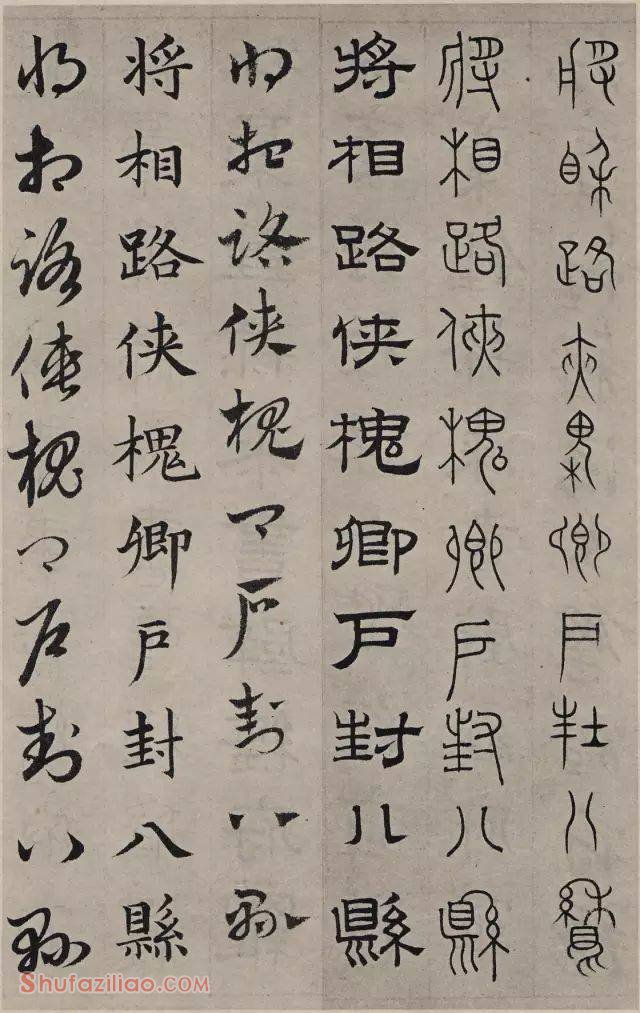 將相路俠槐卿戶封八縣
將相路俠槐卿戶封八縣
將相路俠槐卿戶封八縣
將相路俠槐卿戶封八縣
將相路俠槐卿戶封八縣
將相路俠槐卿戶封八縣
Shufaziliao.com